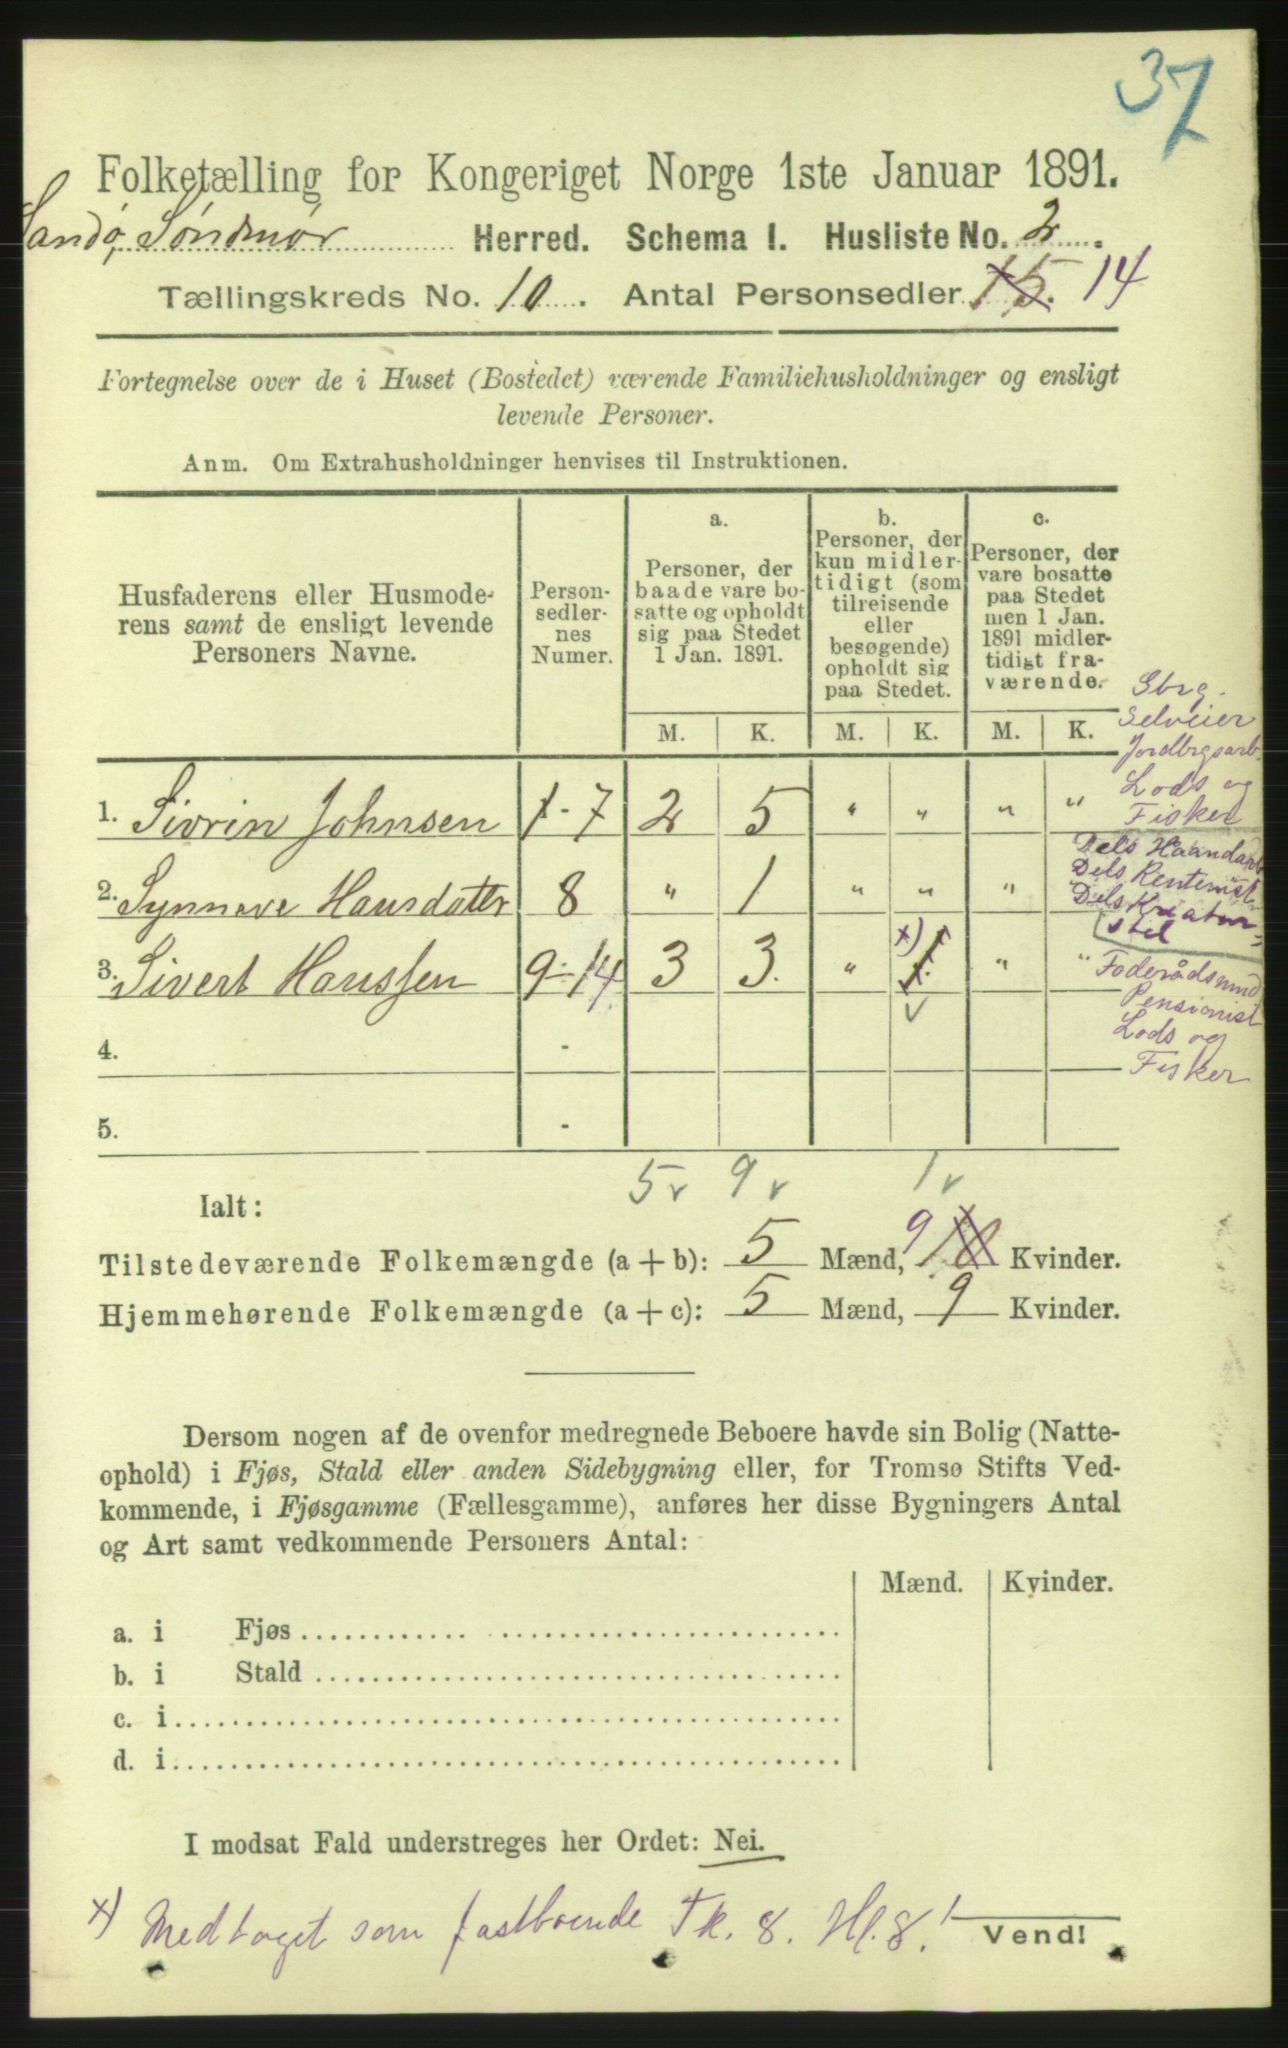 37
Folketælling for Kongeriget Norge 1ste Januar 1891.
Sandø, Søndmør Herred. Schema I. Husliste No. 2.
Tællingskreds No. 10. Antal Personsedler 15. 14
Fortegnelse over de i Huset (Bostedet) værende Familiehusholdninger og ensligt
levende Personer.
Anm. Om Extrahusholdninger henvises til Instruktionen.
Husfaderens eller Husmode-
rens samt de ensligt levende
Personers Navne.
Person-
sedler-
nes
Numer.
a.
Personer, der
baade vare bo-
satte og opholdt
sig paa Stedet
1 Jan. 1891.
b.
Personer, der
kun midler-
tidigt (som
tilreisende
eller
besøgende)
opholdt sig
paa Stedet.
c.
Personer, der
vare bosatte
paa Stedet
men 1 Jan.
1891 midler-
tidigt fra-
værende.
M. K. M. K. M. K.
Gbrg.
Selveier
Jordbrgsarb.
Lods og
Fisker
1. Sivrin Johnsen 1-7 2 5 " " " "
Dels Haandarb
Dels Rentenist
Dels Kreatur-
stel
2. Synneve Hansdatter 8 " 1 " " "
3. Sivert Hanssen 9-14 3 3. " x) 1. " "
Foderådsmnd
Pensionist
Lods og
Fisker
4. -
5. -
5 v 9 v 1 v
Ialt:
Tilstedeværende Folkemængde (a + b): 5 Mænd, 9 10 Kvinder.
Hjemmehørende Folkemængde (a + c): 5 Mænd, 9 Kvinder.
Dersom nogen af de ovenfor medregnede Beboere havde sin Bolig (Natte-
ophold) i Fjøs, Stald eller anden Sidebygning eller, for Tromsø Stifts Ved-
kommende, i Fjøsgamme (Fællesgamme), anføres her disse Bygningers Antal
og Art samt vedkommende Personers Antal:
Mænd. Kvinder.
a. i Fjøs
b. i Stald
c. i
d. i
I modsat Fald understreges her Ordet: Nei.
x) Medtaget som fastboende Tk. 8. Hl. 8!
Vend!